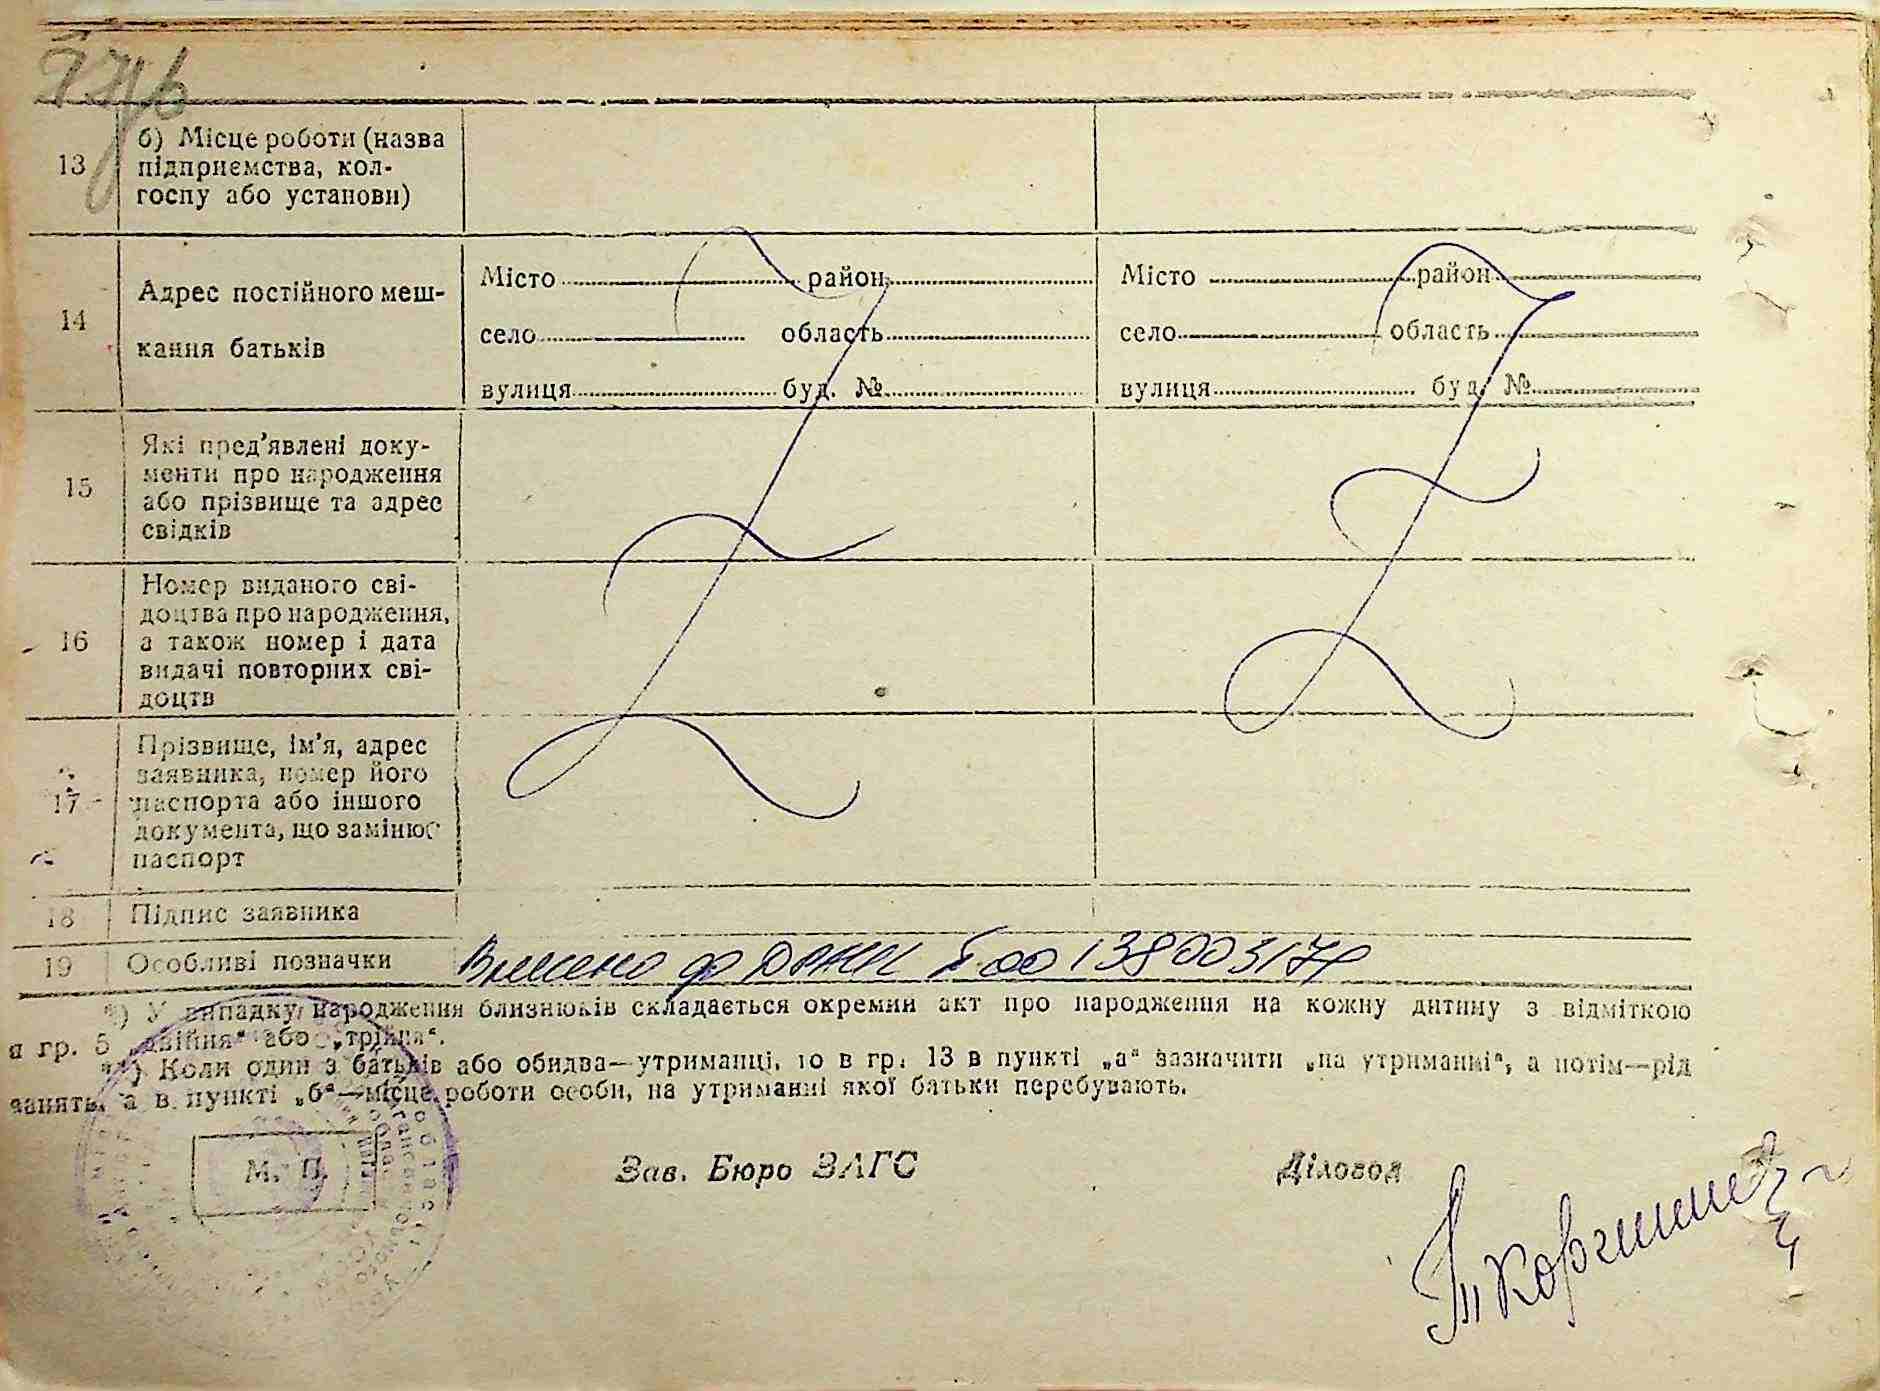 13
б) Місце роботи (назва
підприємства, кол-
госпу або установи)
14
Адрес постійного меш-
кання батьків
Місто район
село область
вулиця буд. №
Місто район
село область
вулиця буд. №
15
Які пред'явлені доку-
менти про народження
або прізвище та адрес
свідків
16
Номер виданого сві-
доцтва про народження,
а також номер і дата
видачі повторних сві-
доцтв
17
Прізвище, ім'я, адрес
заявника, номер його
паспорта або іншого
документа, що замінює
паспорт
18 Підпис заявника
19 Особливі позначки до 00138003174
*) У випадку народження близнюків складається окремий акт про народження на кожну дитину з відміткою
в гр. 5 „двійня“ або „трійня“.
**) Коли один з батьків або обидва—утриманці, то в гр. 13 в пункті „а“ зазначити „на утриманні“, а потім—рід
занять, а в пункті „б“—місце роботи особи, на утриманні якої батьки перебувають.
М. П.
Зав. Бюро ЗАГС
Діловод